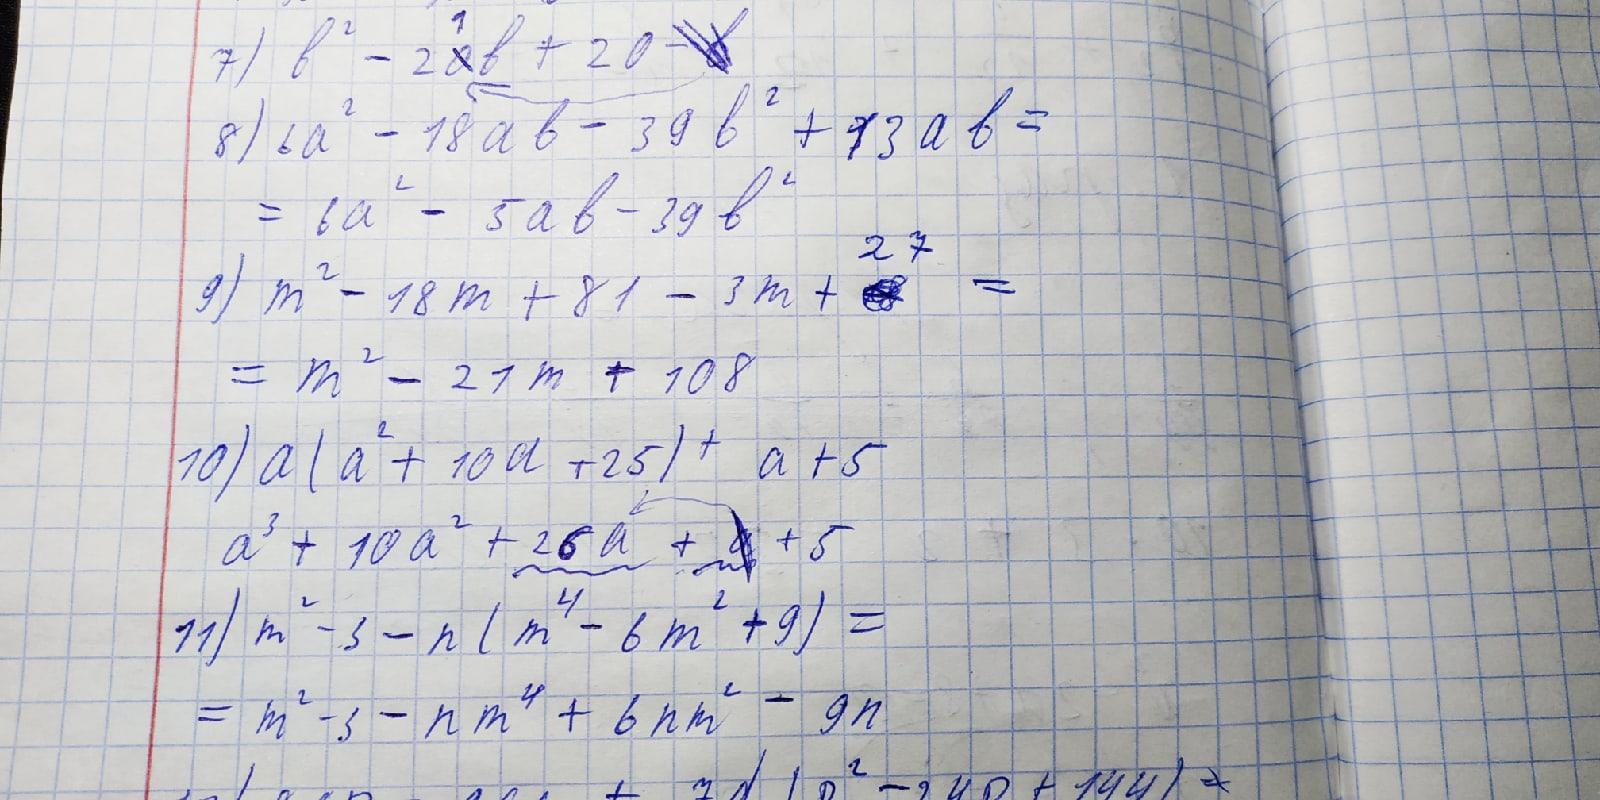 7) b² - 21b + 20
8) 6a² - 18ab - 39b² + 13ab =
= 6a² - 5ab - 39b²
9) m² - 18m + 81 - 3m + 27 =
= m² - 21m + 108
10) a(a² + 10a + 25) + a + 5
a³ + 10a² + 26a + a + 5
11) m² - 3 - n(m⁴ - 6m² + 9) =
= m² - 3 - nm⁴ + 6nm² - 9n